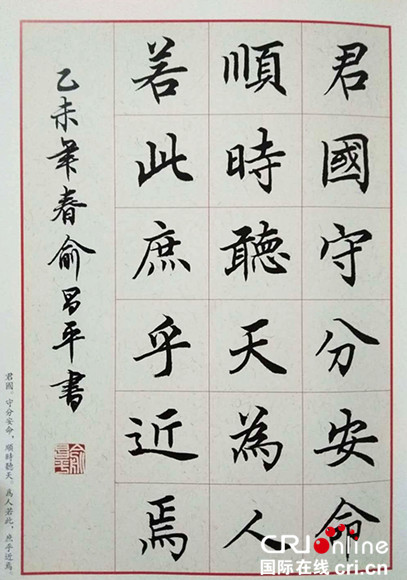 君國守分安命
順時聽天為人
若此庶乎近焉
乙未年春俞昌平書
君國。守分安命，順時聽天。爲人若此，庶乎近焉
CRIOnline
国际在线.cri.cn